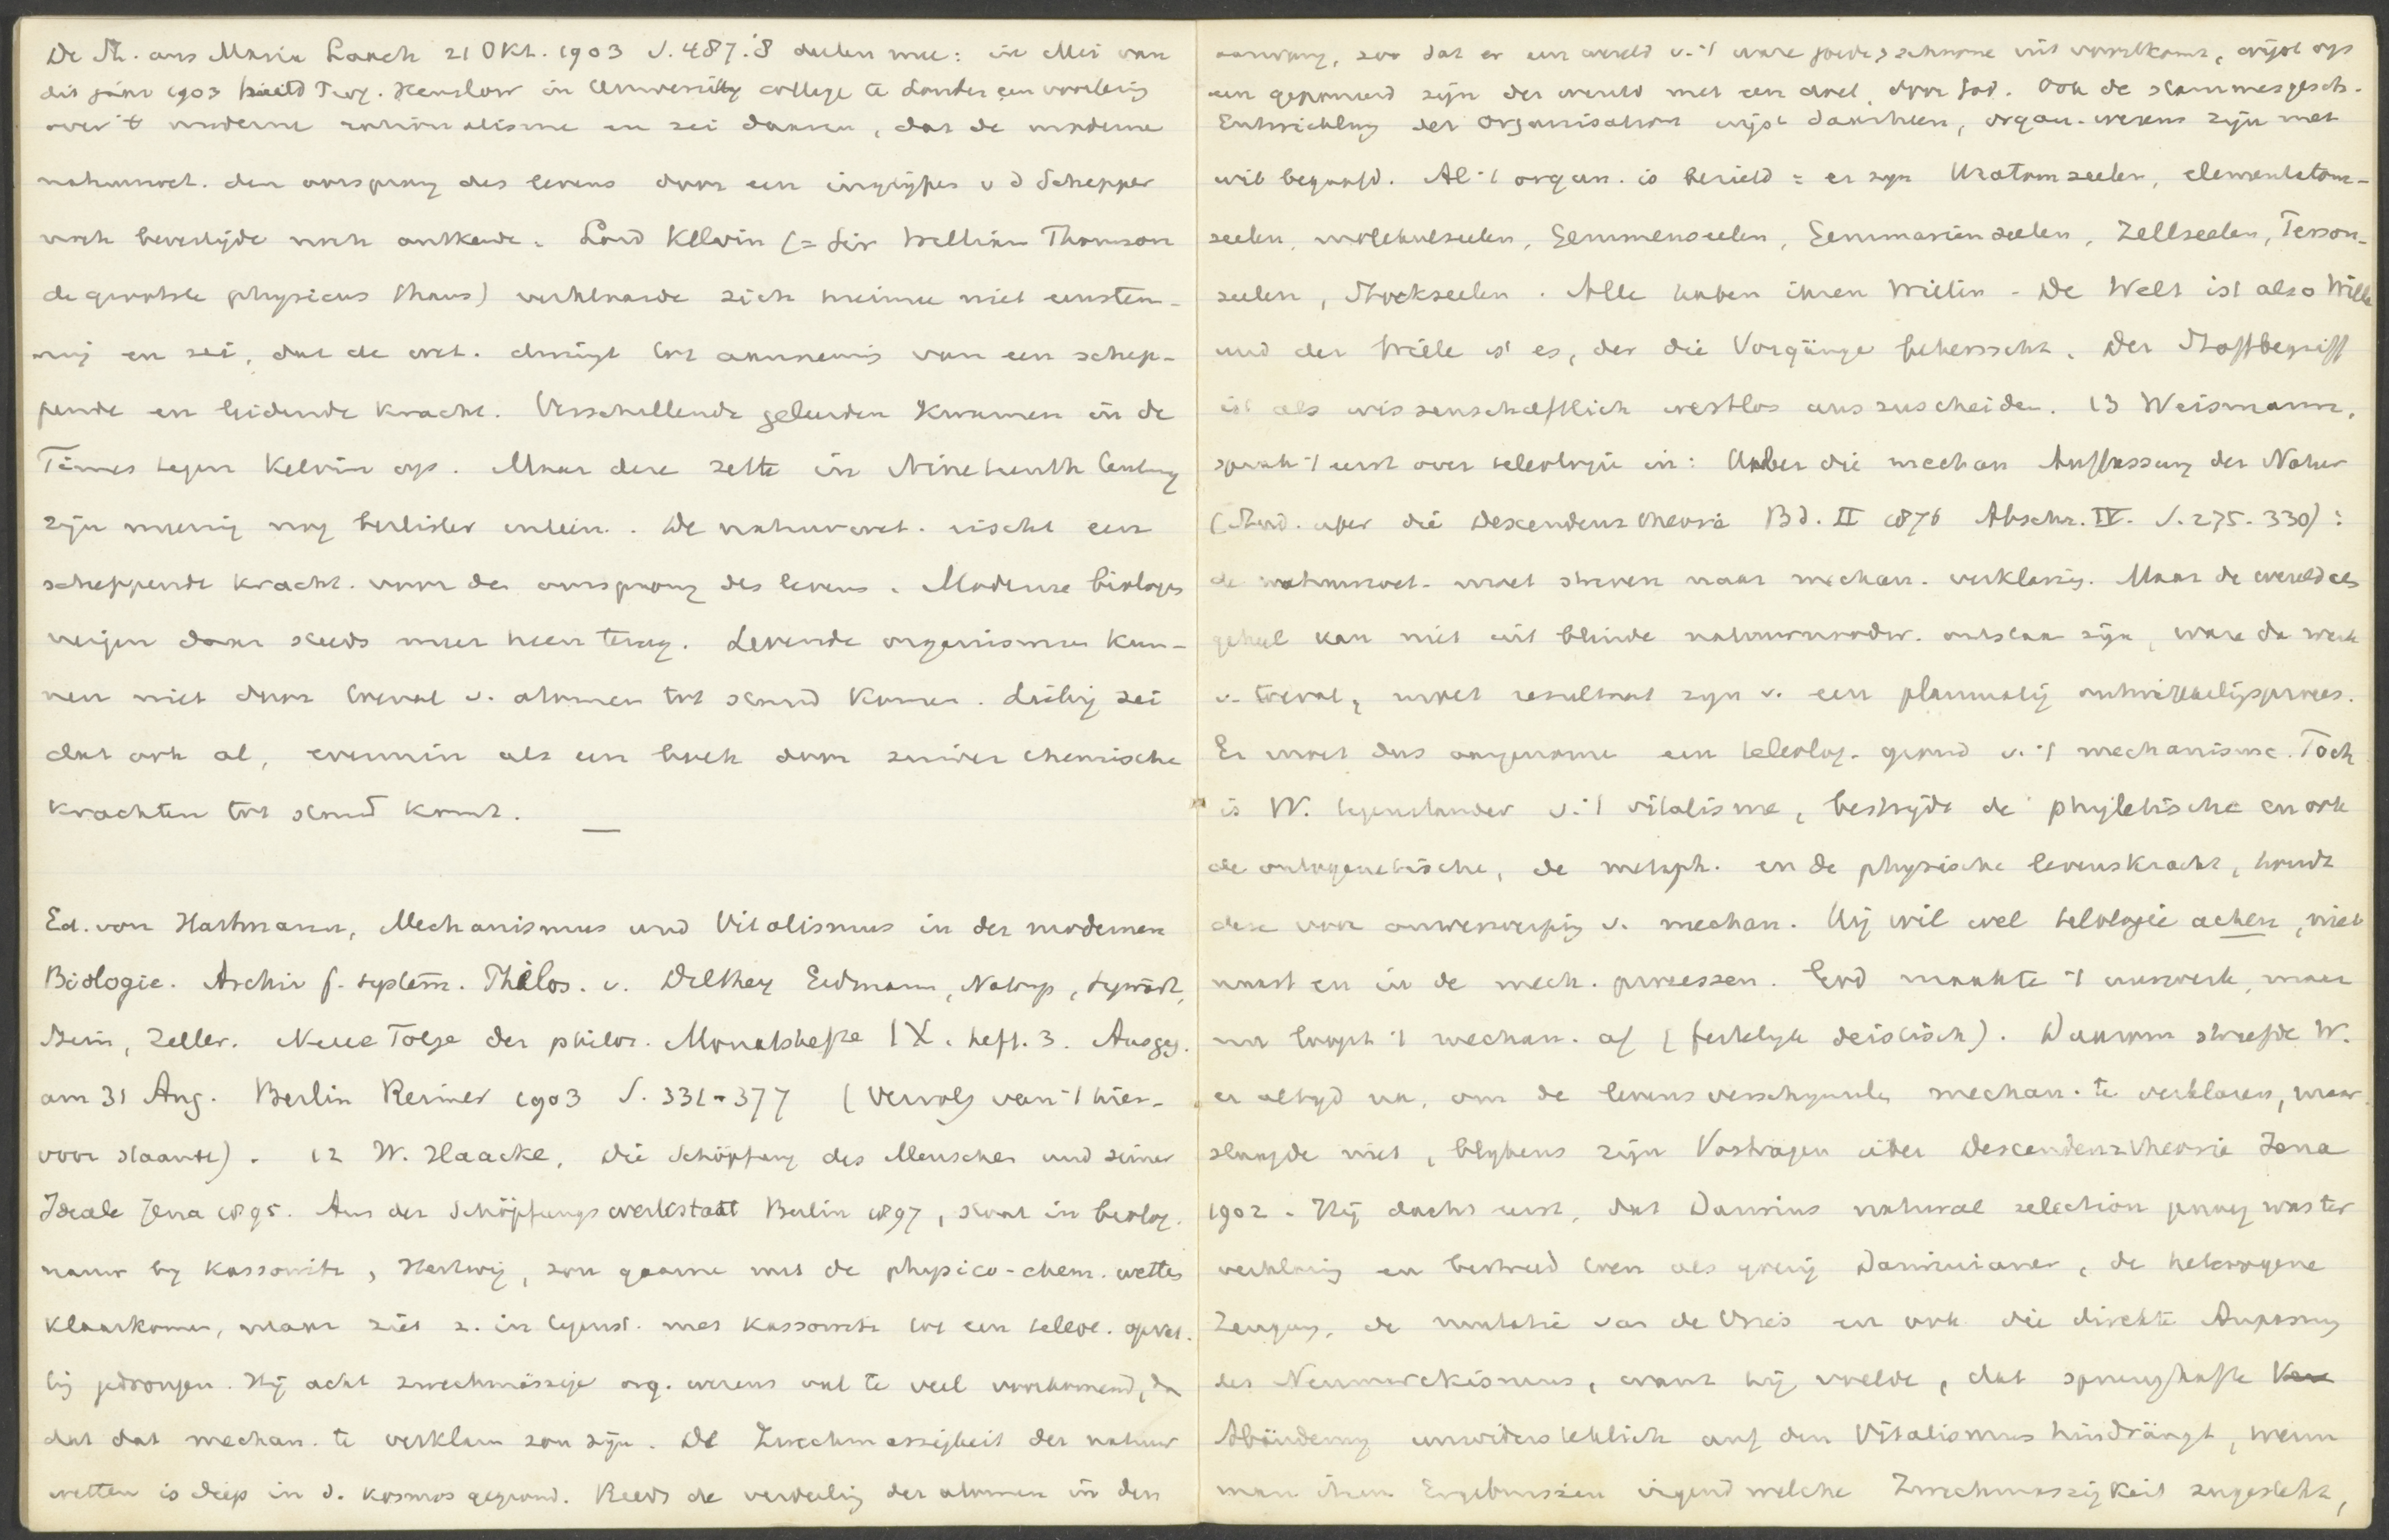 De St. aus Maria Laach 21 Okt. 1903 S. 487.'8 deelen mee: in Mei van
dit jaar 1903 hield Prof. Henslow in University college te Londen een voorlezing
over 't moderne rationalisme en zei daarin, dat de moderne
natuurwet. den oorsprong des levens door een ingrijpen v d Schepper
noch bevestigde noch ontkende. Lord Kelvin (= Sir William Thomson
de grootste physicus thans) verklaarde zich hiermee niet eenstem-
mig en zei, dat de wet. dwingt tot aanneming van een schep-
pende en leidende kracht. Verschillende geleerden kwamen in de
Times tegen Kelvin op. Maar deze zette in Nineteenth Century
zijn meening nog beslister uiteen. De natuurwet. eischt een
scheppende kracht voor den oorsprong des levens. Moderne biologen
neigen daar steeds meer heen terug. Levende organismen kun-
nen niet door toeval v. atomen tot stand komen. Liebig zei
dat ook al, evenmin als een boek door zuiver chemische
krachten tot stand komt. —
Ed. von Hartmann, Mechanismus und Vitalismus in der modernen
Biologie. Archiv f. system. Philos. v. Dilthey Erdmann, Natorp, Sigwart,
Stein, Zeller. Neue Folge der philos. Monatshefte IX. heft. 3. Ausgeg.
am 31 Aug. Berlin Reimer 1903 S. 331-377 (Vervolg van 't hier-
voor staande). 12 W. Haacke, Die Schöpfung des Menschen und seiner
Ideale Jena 1895. Aus der Schöpfungswerkstatt Berlin 1897, staat in biolog.
natuur by Kassowitz, Hertwig, zou gaarne met de physico-chem. wetten
klaarkomen, maar ziet z. in tegenst. met Kassowitz tot een teleol. opvat.
ting gedrongen. Hij acht zweckmässige org. wezens veel te veel voorkomend, dan
dat dat mechan. te verklaren zou zijn. De Zweckmässigkeit der natuur
wetten is diep in d. kosmos gegrond. Reeds de verdeeling der atomen in den
aanvang, zoo dat er een wereld v. 't ware goede, schoone uit voortkomt, wijst op
een geponeerd zijn der wereld met een doel, door God. Ook de stammesgesch.
Entwicklung der Organisation wijst daarheen, organ. wezens zijn met
wil begaafd. Al 't organ. is bezield = er zyn Uratomseelen, elementatom-
seelen, molekulseelen, Gemmenseelen, Gemmarienseelen, Zellseelen, Person-
seelen, Stockseelen. Alle haben ihren Willen. De Welt ist also Wille
und der Wille ist es, der die Vorgänge beherrscht. Der Stoffbegriff
ist als wissenschaftlich wertlos auszuscheiden. 13 Weismann,
sprak 't eerst over teleologie in: Ueber die mechan Auffassung der Natur
(Stud. uber die Descendenztheorie Bd. II 1876 Abschn. IV. S. 275-330):
de natuurwet. moet streven naar mechan. verklaring. Maar de wereld als
geheel kan niet uit blinde natuurnoodw. ontstaan zijn, ware dan werk
v. toeval, moet resultaat zyn v. een planmatig ontwikkelingsproces.
Er moet dus aangenomen een teleolog. grond v. 't mechanisme. Toch
is W. tegenstander v. 't vitalisme, bestrydt de phyletische en ook
de ontogenetische, de metaph. en de physische levenskracht, houdt
deze voor omverwerping v. mechan. Hij wil wel teleologie achter, niet
naast en in de mech. processen. God maakte 't uurwerk, maar
nu loopt 't mechan. af (feitelyk deistisch). Daarom streefde W.
er altyd na, om de levensverschynselen mechan. te verklaren, maar
slaagde niet, blykens zijn Vorträgen über Descendenztheorie Jena
1902. Hij dacht eerst, dat Darwins natural selection genoeg was ter
verklaring en bestreed toen als yverig Darwinianer, de heterogene
Zeugung, de mutatie van de Vries en ook die direkte Anpassung
des Neumarckismus, want hij voelde, dat sprunghafte
Abänderung unwiderstehlich auf den Vitalismus hindrängt, wenn
man ihren Ergebnissen irgend welche Zweckmässigkeit zugesteht,